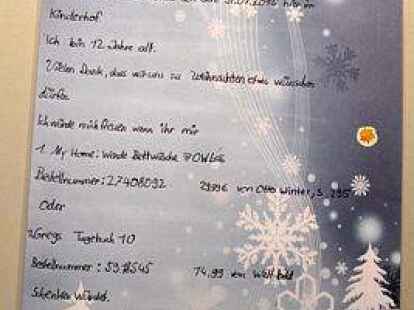 hier im
Kinderhof
Ich bin 12 Jahre alt.
Vielen Dank, das wir uns zu Weihnachten etwas wünschen
dürfen.
Ich würde mich freuen wenn ihr mir
1. My Home: Wende Bettwäsche
Bestellnummer: 27408092 29.99€ von Otto Winter, S. 295
Oder
2. Gregs Tagebuch 10
Bestellnummer: 14,99 von Weltbild
Schenken würdet.